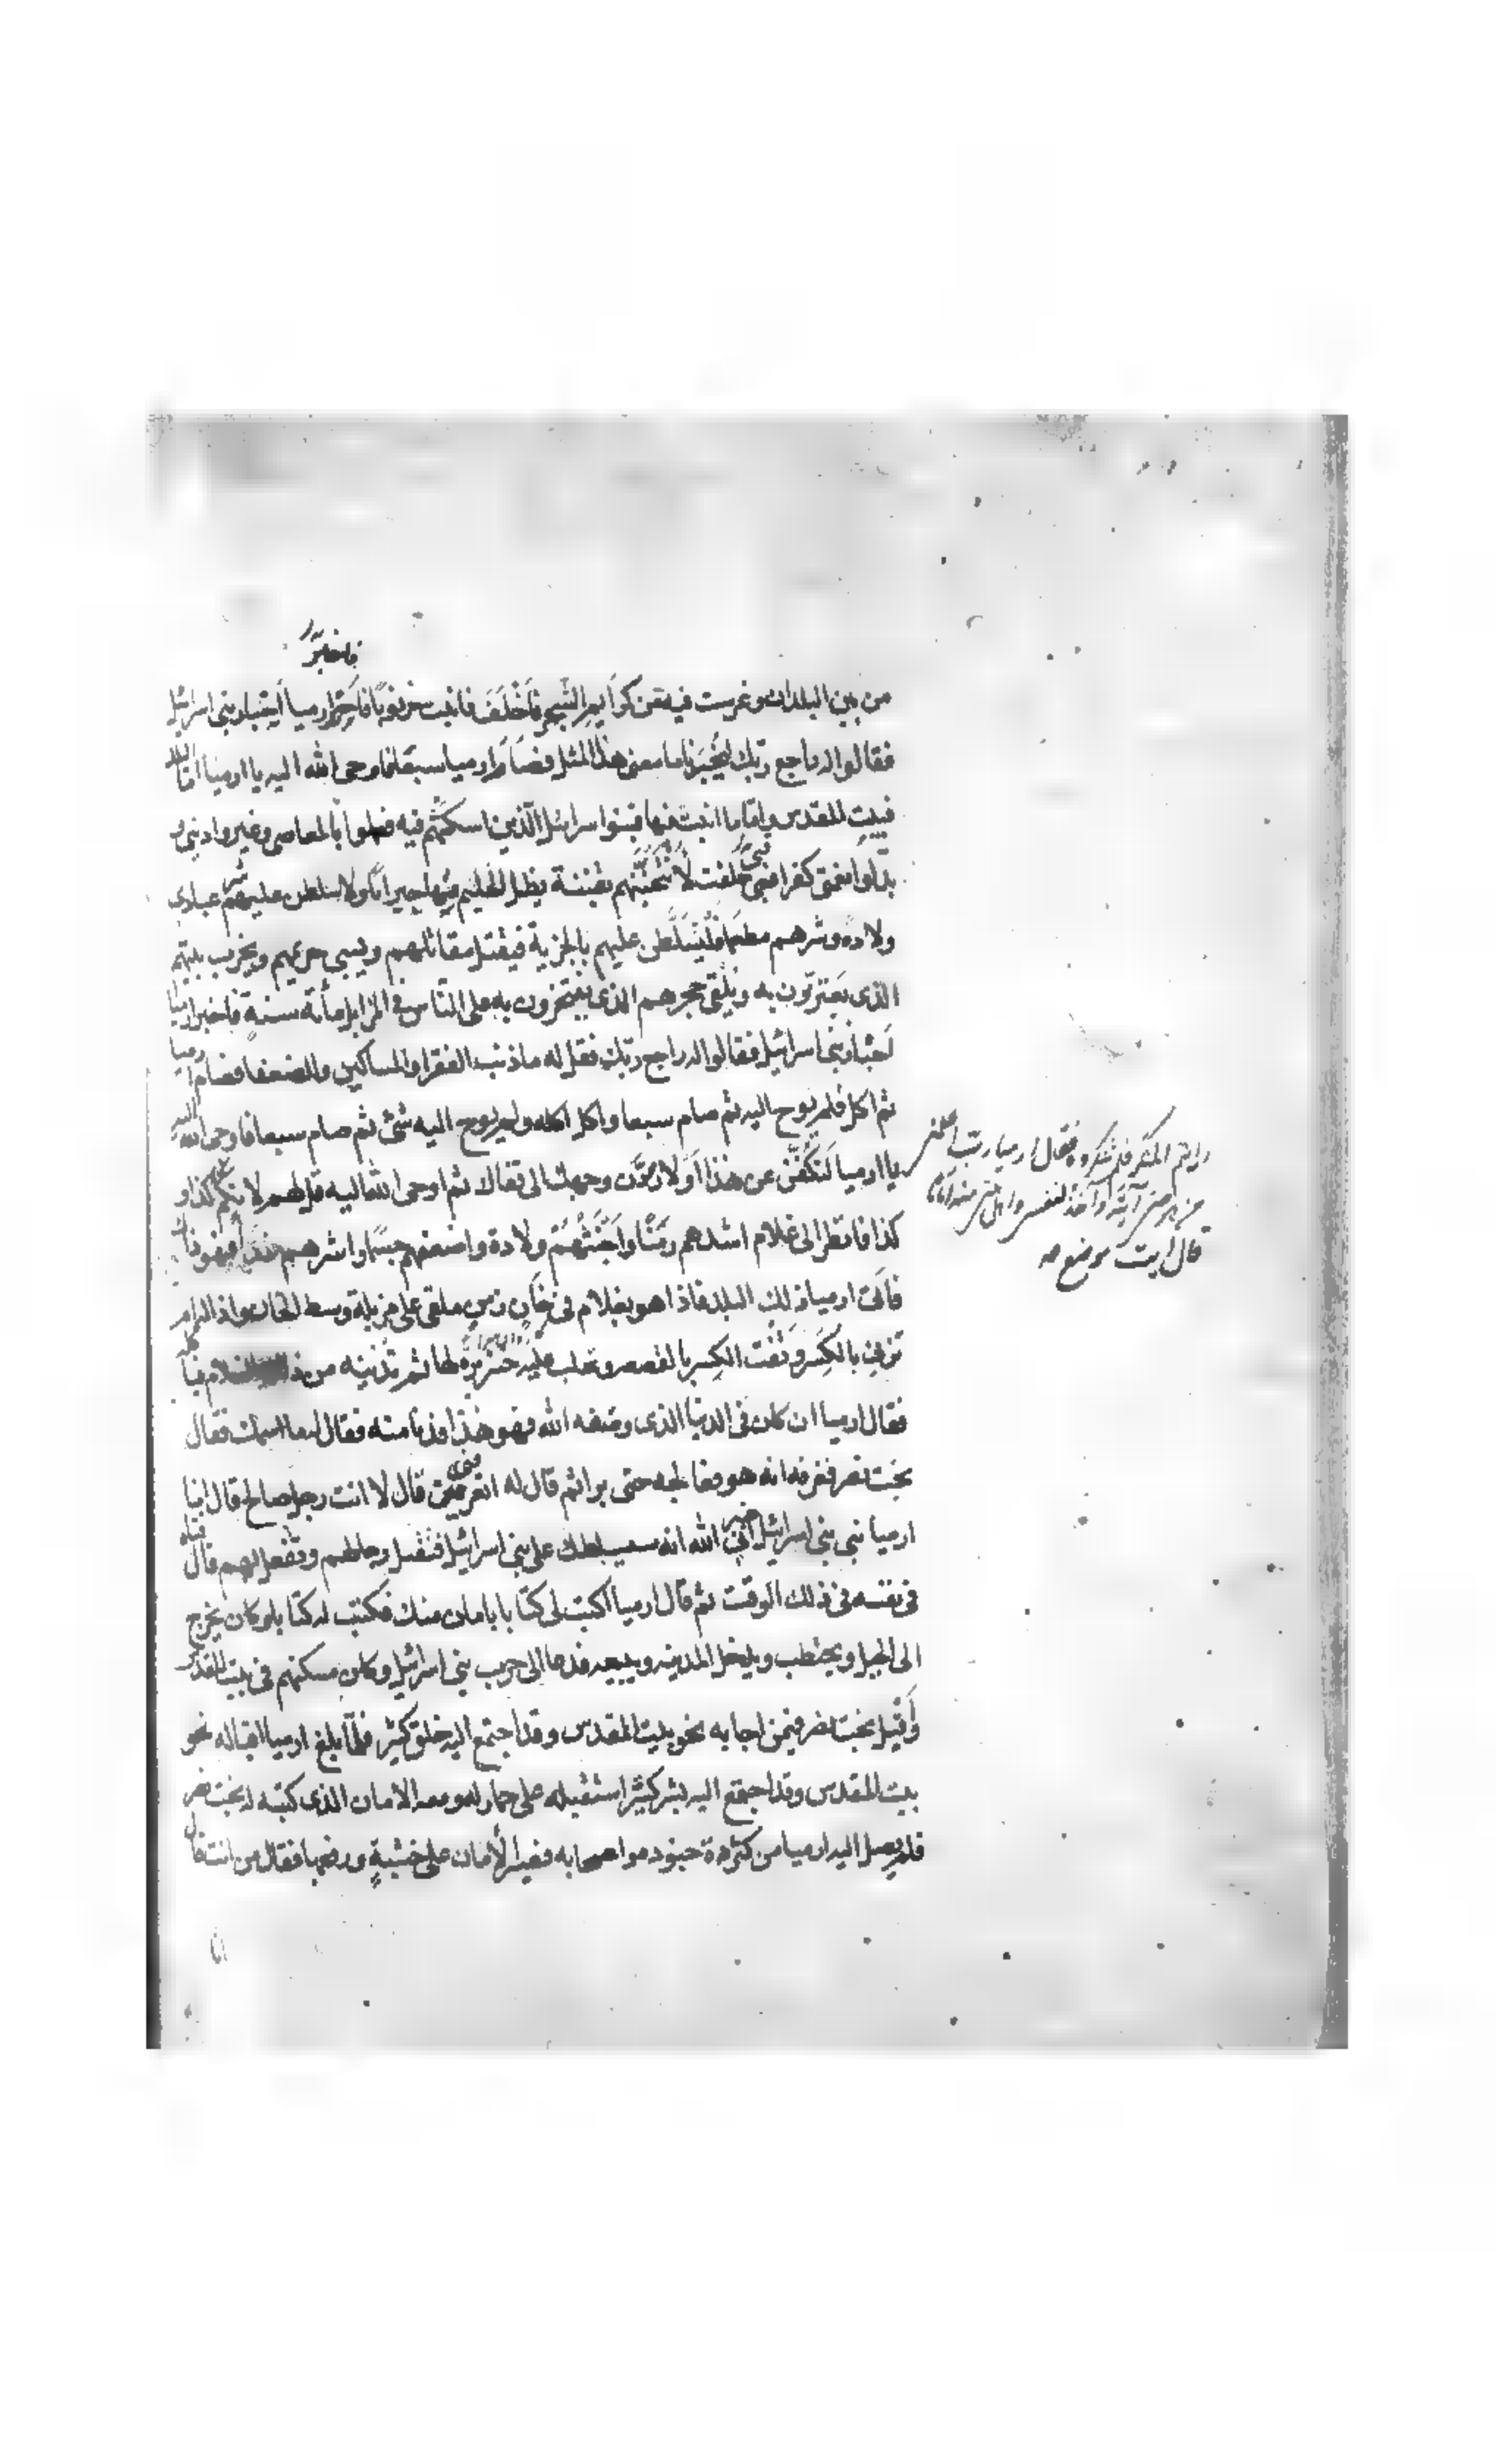 فاخبر
من بين البلدان وغرست فيه من كرايم الشجر فاخلف فانبت خرنوبا فاخبر ارميا احبار بنى اسرائيل
فقالوا له راجع ربك ليخبرنا ما معنى هذا المثل فصام ارميا سبعا فاوحى الله اليه يا ارميا اما البلد
فبيت المقدس واما ما انبت فيها فبنوا اسرائيل الذين اسكنتهم فيه فعملوا بالمعاصى وغيروا دينى و
بدلوا نعمتى كفرا فبى حلفت لامتحننهم بفتنة يظل الحليم فيها حيرانا ولاسلطن عليهم شر عبادى
ولادة وشرهم مطعما فليتسلطن عليهم بالجزية فيقتل مقاتليهم ويسبى حريمهم ويخرب بيتهم
الذى يعتزون به ويلقى حجرهم الذى يفتخرون به على الناس فى المزابل مأئة سنة فاخبر ارميا
احبار بنى اسرائيل فقالوا له راجع ربك فقل له ما ذنب الفقرا والمساكين والضعفا فصام ارميا
ثم اكل فلم يوح اليه ثم صام سبعا واكل اكله ولم يوح اليه شئ ثم صام سبعا فاوحى الله اليه
يا ارميا لتكفن عن هذا او لاردن وجهك الى قفاك ثم اوحى الله اليه قل لهم لانكم
رايتم المنكر فلم تنكروه فقال ارميا رب اعلمنى
من هو حتى آتيه وآخذ لنفسى واهل بيتى منه امانا
قال ايت موضع
كذا وكذا فانظر الى غلام اشدهم زمنا واخبثهم ولادة واضعفهم جسما واشرهم غذا فهو ذلك
فاتى ارميا ذلك البلد فاذا هو بغلام فى خان زمن ملقى على مزبلة وسط الخان واذا له ام
تزنى بالكسر وتفت الكسر بالقصعة وتحلب عليه خنزيرة لها ثم تدنيه من ذلك الغلام فياكله
فقال ارميا ان كان فى الدنيا الذى وصفه الله فهو هذا فدنا منه فقال له ما اسمك فقال
بخت نصر فعرف انه هو فعالجه حتى برا ثم قال له اتعرفنى قال لا انت رجل صالح قال انا
ارميا نبى بنى اسرائيل اخبرنى الله انه سيسلطك على بنى اسرائيل فتقتل رجالهم وتفعل بهم قال فتاه
فى نفسه فى ذلك الوقت ثم قال ارميا اكتب لى كتابا بامان منك فكتب له كتابا وكان يخرج
الى الجبل ويحتطب ويدخل المدينه ويبيعه فدعا الى حرب بنى اسرائيل وكان مسكنهم فى بيت المقدس
واقبل بخت نصر فيمن اجابه نحو بيت المقدس وقد اجتمع اليه خلق كثير فلما بلغ ارميا اقباله نحو
بيت المقدس وقد اجتمع اليه بشر كثير استقبله على حمار له ومعه الامان الذى كتبه له بخت نصر
فلم يصل اليه ارميا من كثرة جنوده واصحابه فصير الأمان على خشبة ورفعها فقال من انت قال